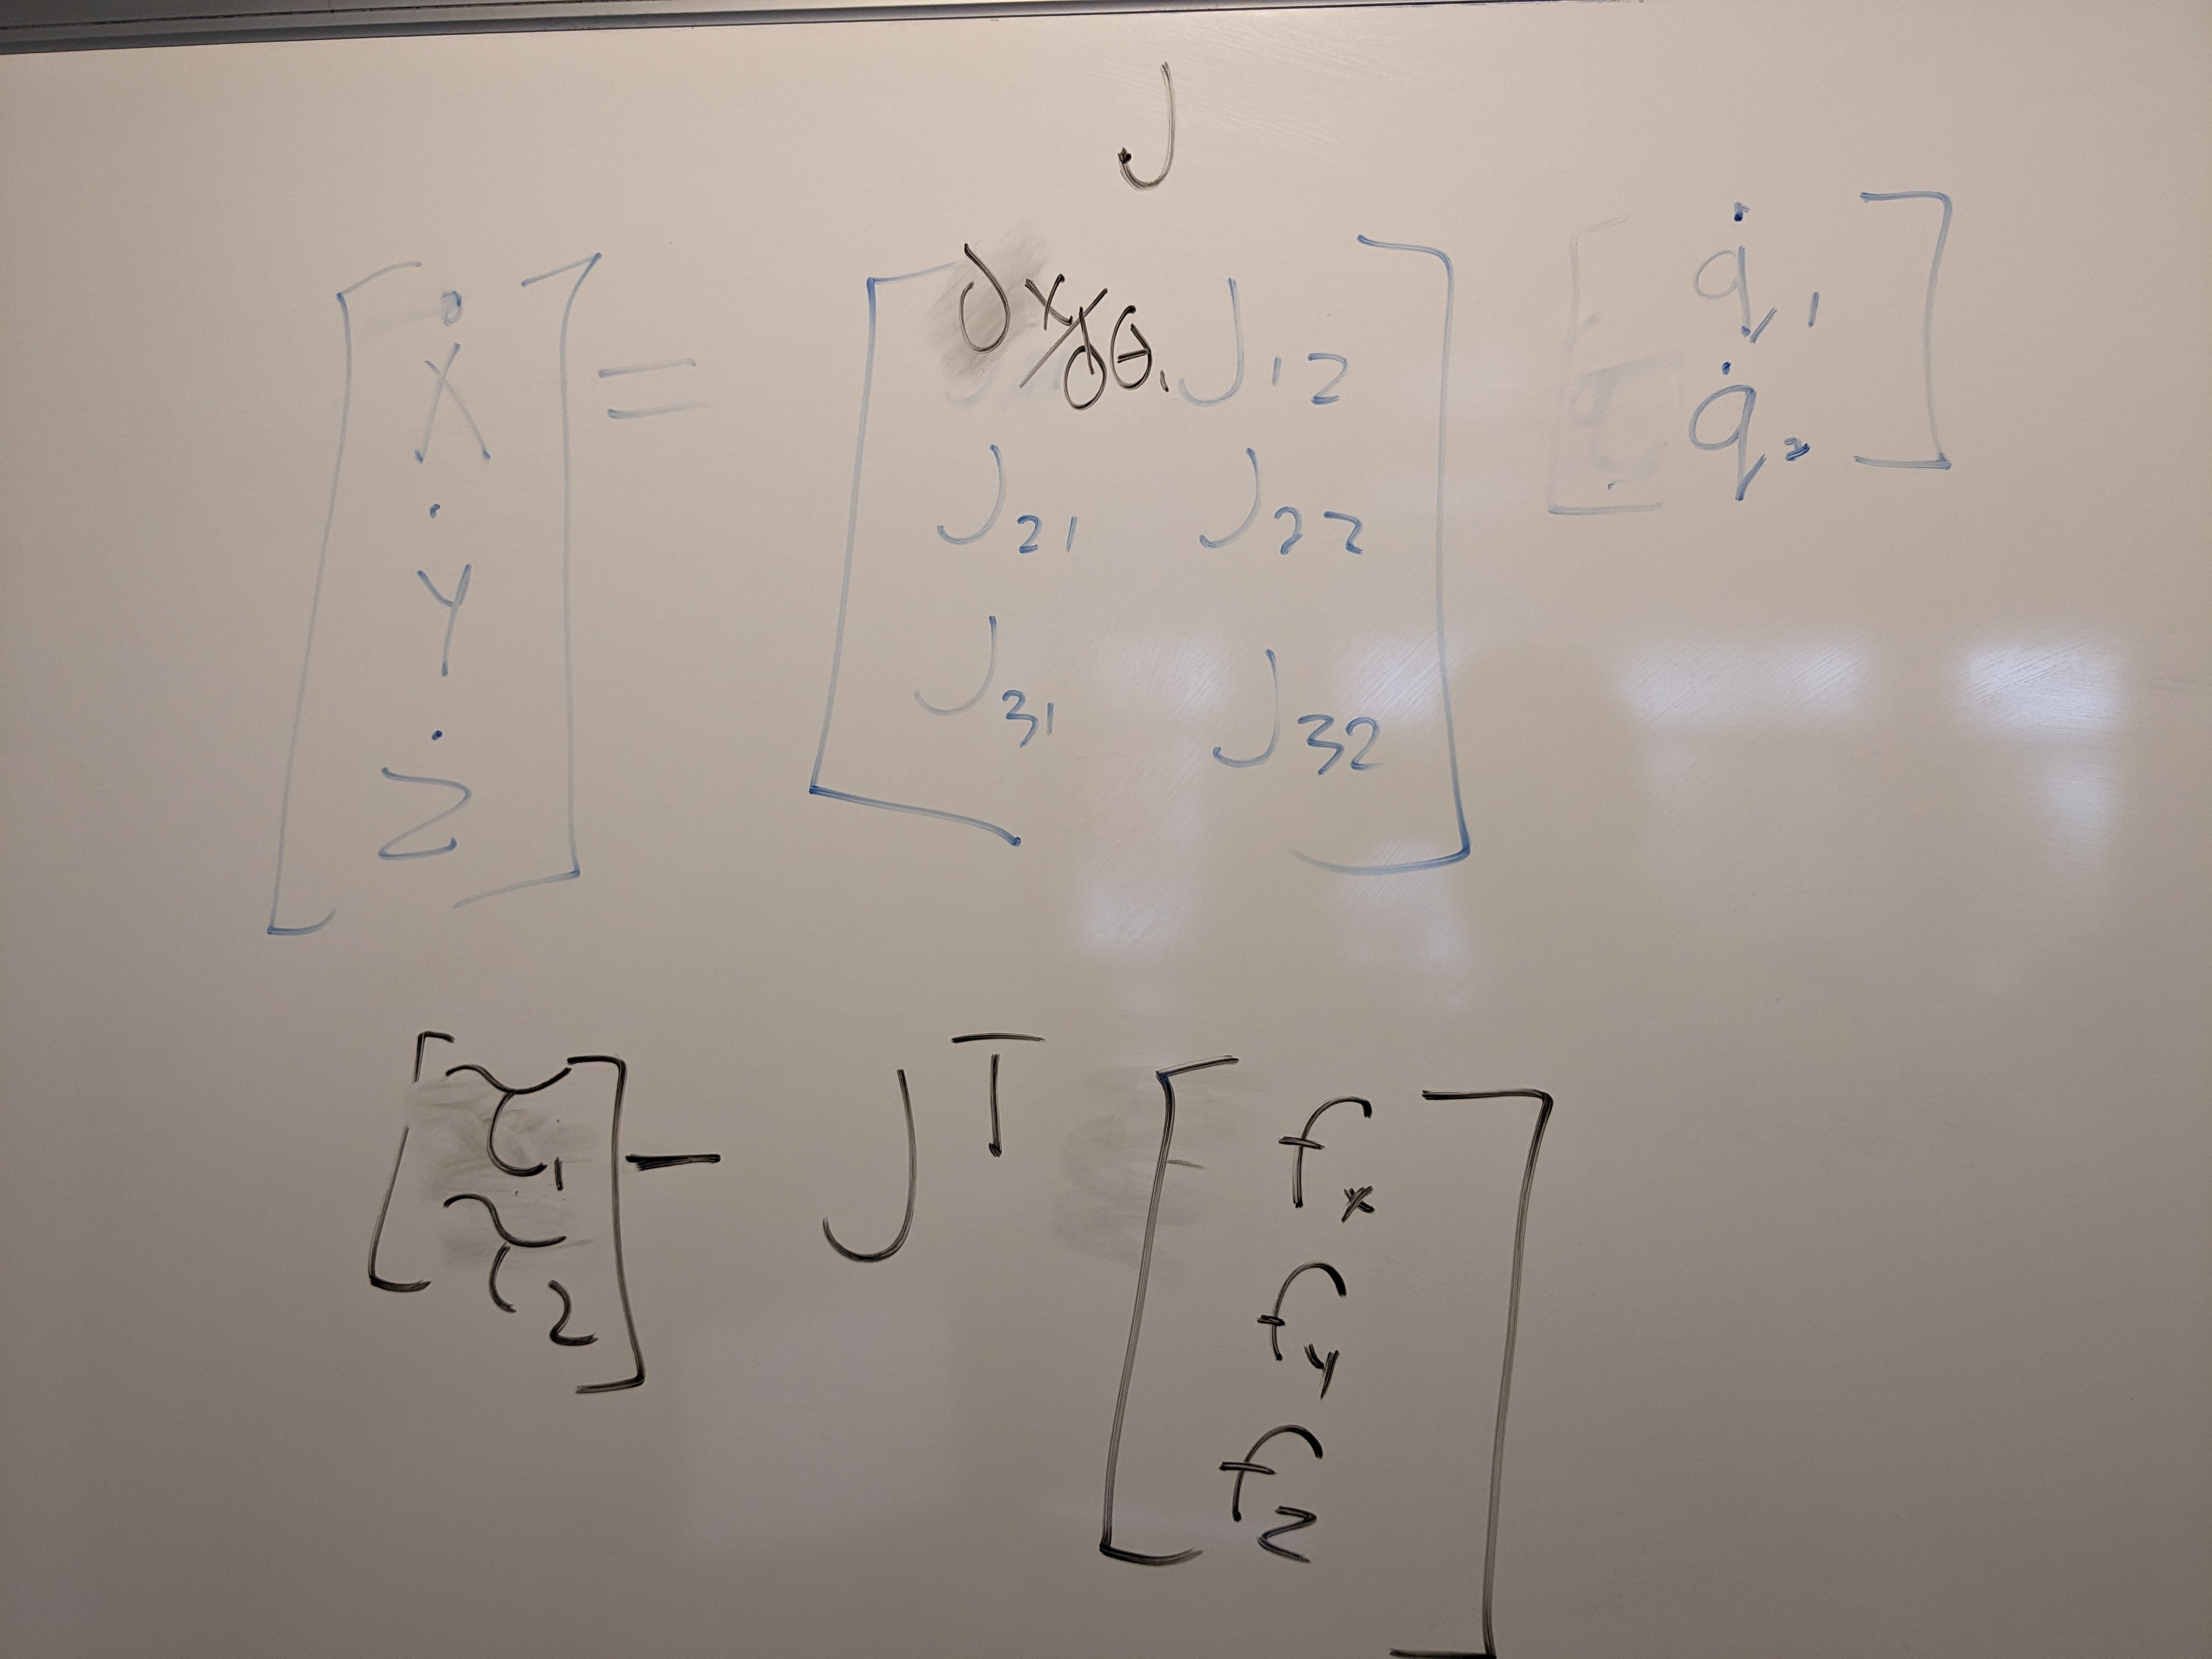 J
[ẋ ẏ ż] = [∂x/∂θ₁ J₁₂ J₂₁ J₂₂ J₃₁ J₃₂] [q̇₁ q̇₂]
[τ₁ τ₂] - Jᵀ [fₓ f_y f_z]